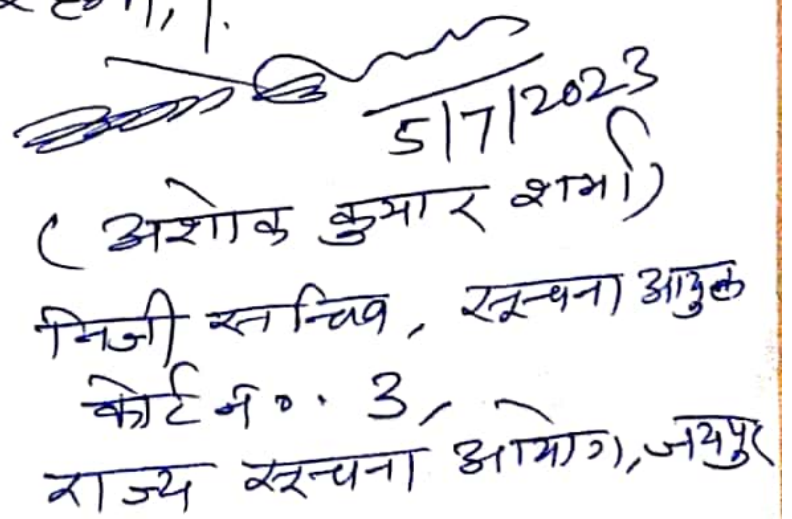 5/7/2023
(अशोक कुमार शर्मा)
निजी सचिव, सूचना आयुक्त
कोर्ट नं०. 3,
राज्य सूचना आयोग, जयपुर